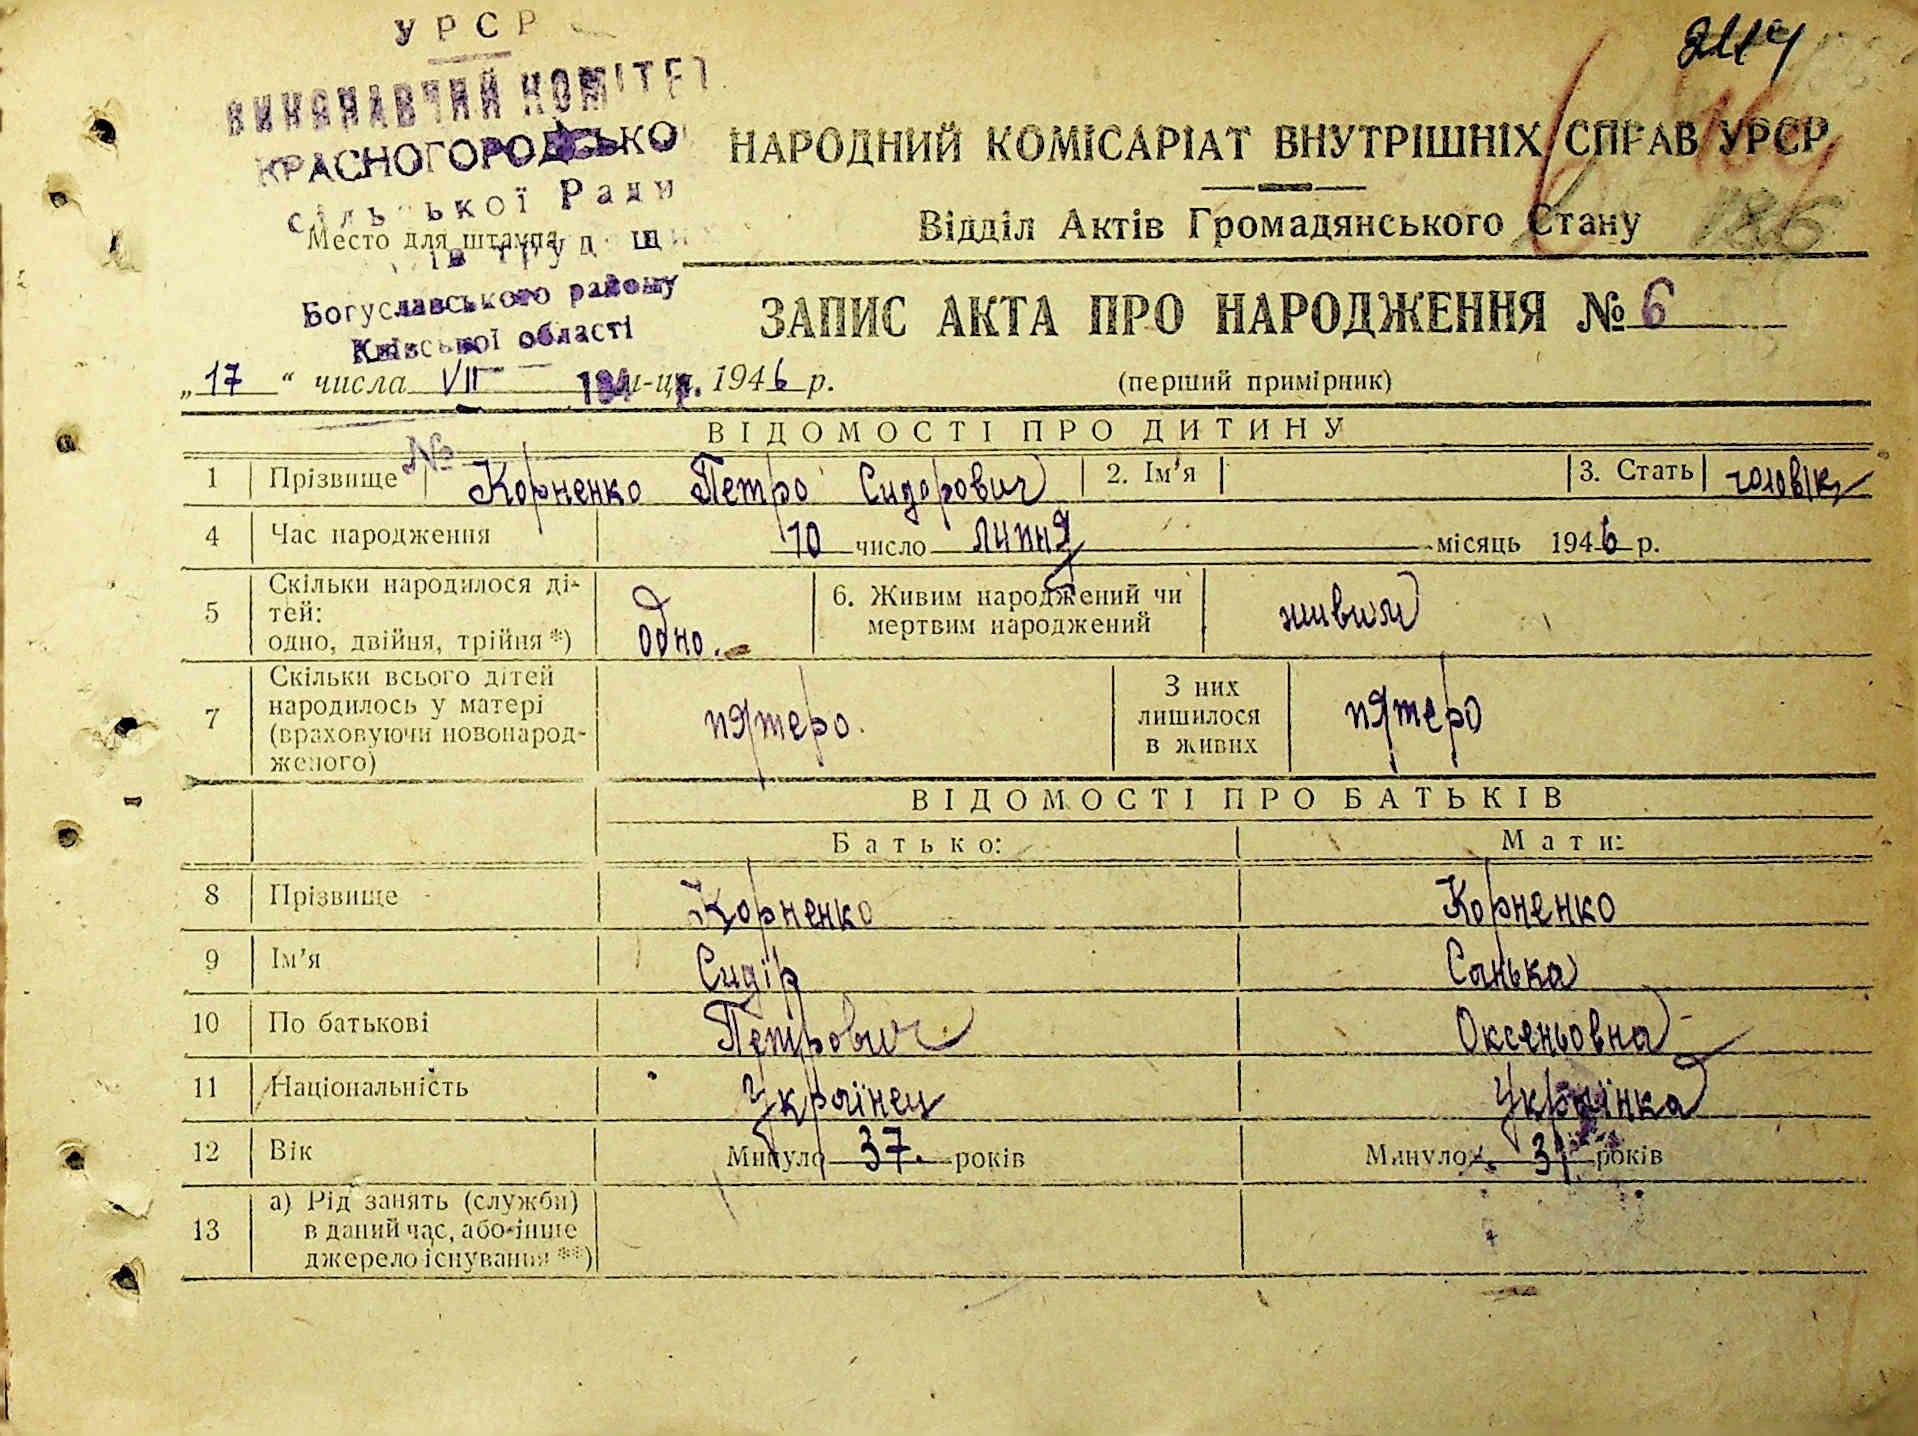 УРСР
ВИКОНАВЧИЙ КОМІТЕТ
КРАСНОГОРОДСЬКО
сільської Ради
Место для штампа
Богуславського району
Київської області
НАРОДНИЙ КОМІСАРІАТ ВНУТРІШНІХ СПРАВ УРСР
186
Відділ Актів Громадянського Стану
ЗАПИС АКТА ПРО НАРОДЖЕННЯ № 6
„17“ числа VII м-ця 1946 р.
(перший примірник)
ВІДОМОСТІ ПРО ДИТИНУ
№
1 Прізвище Корненко Петро Сидорович 2. Ім'я 3. Стать чоловік
4 Час народження 10 число липня місяць 1946 р.
5 Скільки народилося ді-
тей:
одно, двійня, трійня *) одно.
6. Живим народжений чи
мертвим народжений живим
7 Скільки всього дітей
народилось у матері
(враховуючи новонарод-
женого) пятеро.
З них
лишилося
в живих пятеро
ВІДОМОСТІ ПРО БАТЬКІВ
Батько: Мати:
8 Прізвище Корненко Корненко
9 Ім'я Сидір Санька
10 По батькові Петрович Оксеньовна
11 Національність Українец Українка
12 Вік Минуло 37. років Минуло 31 років
13 а) Рід занять (служби)
в даний час, або інше
джерело існування **)